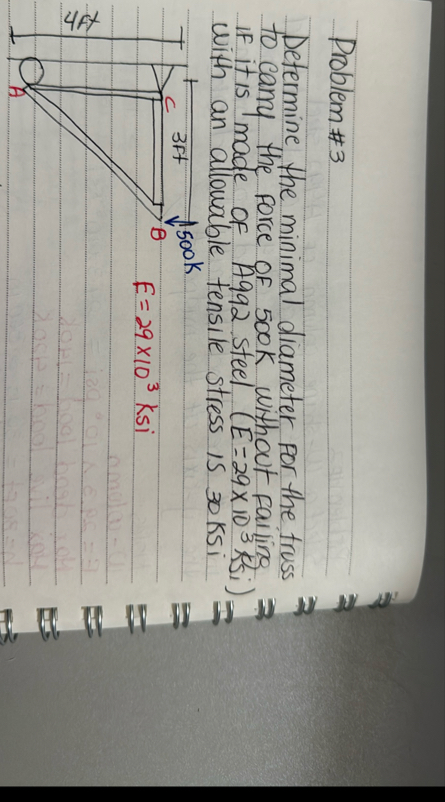 Problem #3
Determine the minimal diameter for the truss
to carry the force of 500K without failing
if it is made of A992 steel (E=29x10³ ksi)
with an allowable tensile stress is 30 ksi
3ft
500K
C
B
4ft
A
E=29x10³ ksi